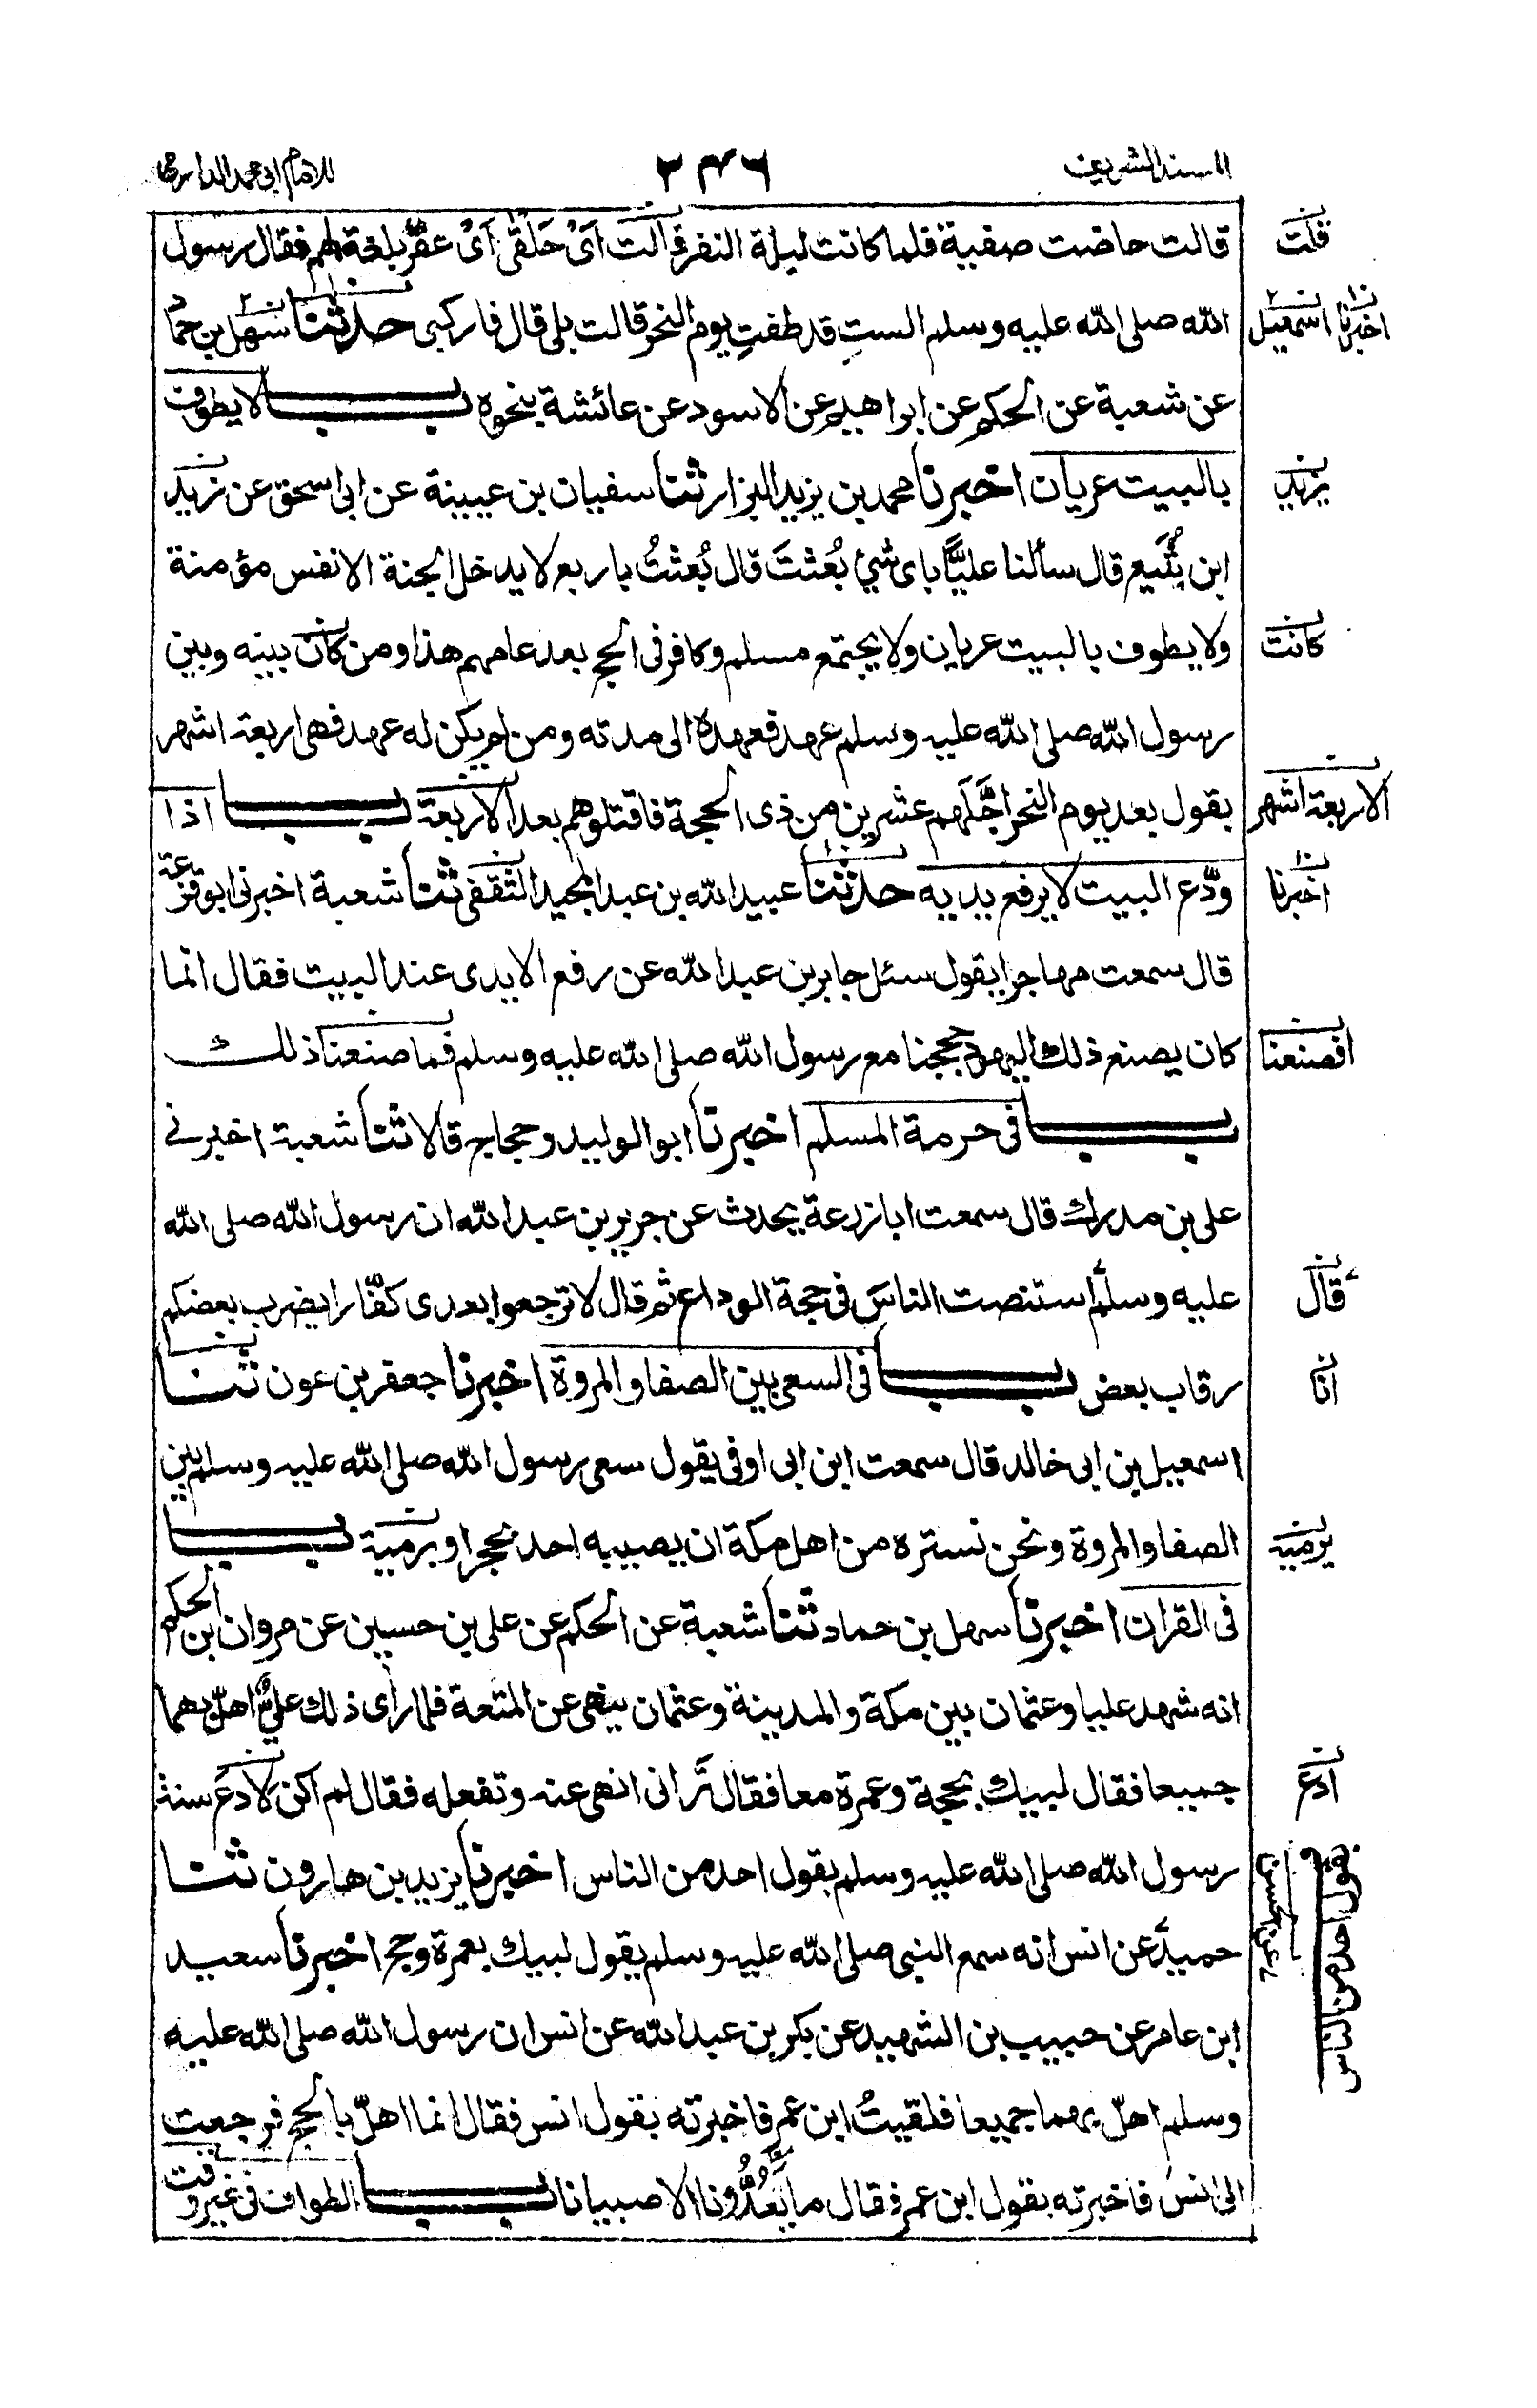 المسند الشريف
٢٤٦
للامام ابي محمد الدارمي
قالت حاضت صفية فلما كانت ليلة النفر قالت اَىْ حَلْقٰى اَىْ عَقْرٰى بلغة لهم فقال رسول
قلت
الله صلى الله عليه وسلم الستِ قد طفتِ يوم النحر قالت بلى قال فاركبى حدثنا سهل بن حماد
اخبرنا اسمعيل
عن شعبة عن الحكم عن ابراهيم عن الاسود عن عائشة بنحوه باب لا يطوف
بالبيت عريان اخبرنا محمد بن يزيد البزار ثنا سفيان بن عيينة عن ابى اسحق عن زيد
يزيد
ابن يُثَيع قال سألنا عليًّا باى شئ بُعثتَ قال بُعثتُ باربع لا يدخل الجنة الا نفس مؤمنة
ولا يطوف بالبيت عريان ولا يجتمع مسلم وكافر فى الحج بعد عامهم هذا ومن كان بينه وبين
كانت
رسول الله صلى الله عليه وسلم عهد فعهده الى مدته ومن لم يكن له عهد فهى اربعة اشهر
يقول بعد يوم النحر اَجَّلَهم عشرين من ذى الحجة فاقتلوهم بعد الاربعة باب اذا
الاربعة اشهر
ودّع البيت لا يرفع يديه حدثنا عبيد الله بن عبد المجيد الثقفى ثنا شعبة اخبرنى ابو قزعة
اخبرنا
قال سمعت مهاجرا يقول سئل جابر بن عبد الله عن رفع الايدى عند البيت فقال انما
كان يصنع ذلك اليهود حججنا مع رسول الله صلى الله عليه وسلم فما صنعنا ذلك
افصنعنا
باب فى حرمة المسلم اخبرنا ابو الوليد وحجاج قالا ثنا شعبة اخبرنى
على بن مدرك قال سمعت ابا زرعة يحدث عن جرير بن عبد الله ان رسول الله صلى الله
عليه وسلم استنصت الناسَ فى حجة الوداع ثم قال لا ترجعوا بعدى كفّارا يضرب بعضكم
قال
رقاب بعض باب فى السعى بين الصفا والمروة اخبرنا جعفر بن عون ثنا
انا
اسمعيل بن ابى خالد قال سمعت ابن ابى اوفى يقول سعى رسول الله صلى الله عليه وسلم بين
الصفا والمروة ونحن نستره من اهل مكة ان يصيبه احد بحجر او برمية باب
يرميه
فى القران اخبرنا سهل بن حماد ثنا شعبة عن الحكم عن على بن حسين عن مروان بن الحكم
انه شهد عليا وعثمان بين مكة والمدينة وعثمان ينهى عن المتعة فلما راى ذلك علىٌّ اهلّ بهما
جميعا فقال لبيك بحجة وعمرة معا فقال تَرانى انهى عنه وتفعله فقال لم اكن لادعَ سنة
ادع
رسول الله صلى الله عليه وسلم بقول احد من الناس اخبرنا يزيد بن هارون ثنا
بقول احد من الناس
حميد عن انس انه سمع النبى صلى الله عليه وسلم يقول لبيك بعمرة وحج اخبرنا سعيد
ابن عامر عن حبيب بن الشهيد عن بكر بن عبد الله عن انس ان رسول الله صلى الله عليه
وسلم اهلّ بهما جميعا فلقيتُ ابن عمر فاخبرته بقول انس فقال انما اهلّ بالحج فرجعت
الى انس فاخبرته بقول ابن عمر فقال ما يَعُدُّونا الا صبيانا باب الطواف فى غير وقت